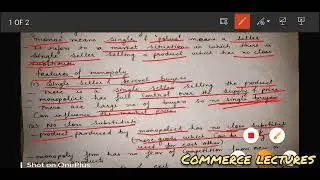 1 OF 2
"monos" means single & "polus" means a seller
It refers to a market situation in which there is
single seller selling a product which has no close
substitute.
features of monopoly
(1) Single seller & several buyers
There is a single seller selling the product
monopolist has full control over the supply & price
There are large no of buyers so no single buyer
can influence the market price
(2) No close substitute
product produced by monopolist has no close substitute
(Those goods which can be
used by each other)
monopoly firm has no fear of competition from new or
products
Shot on OnePlus
COMMERCE LECTURES